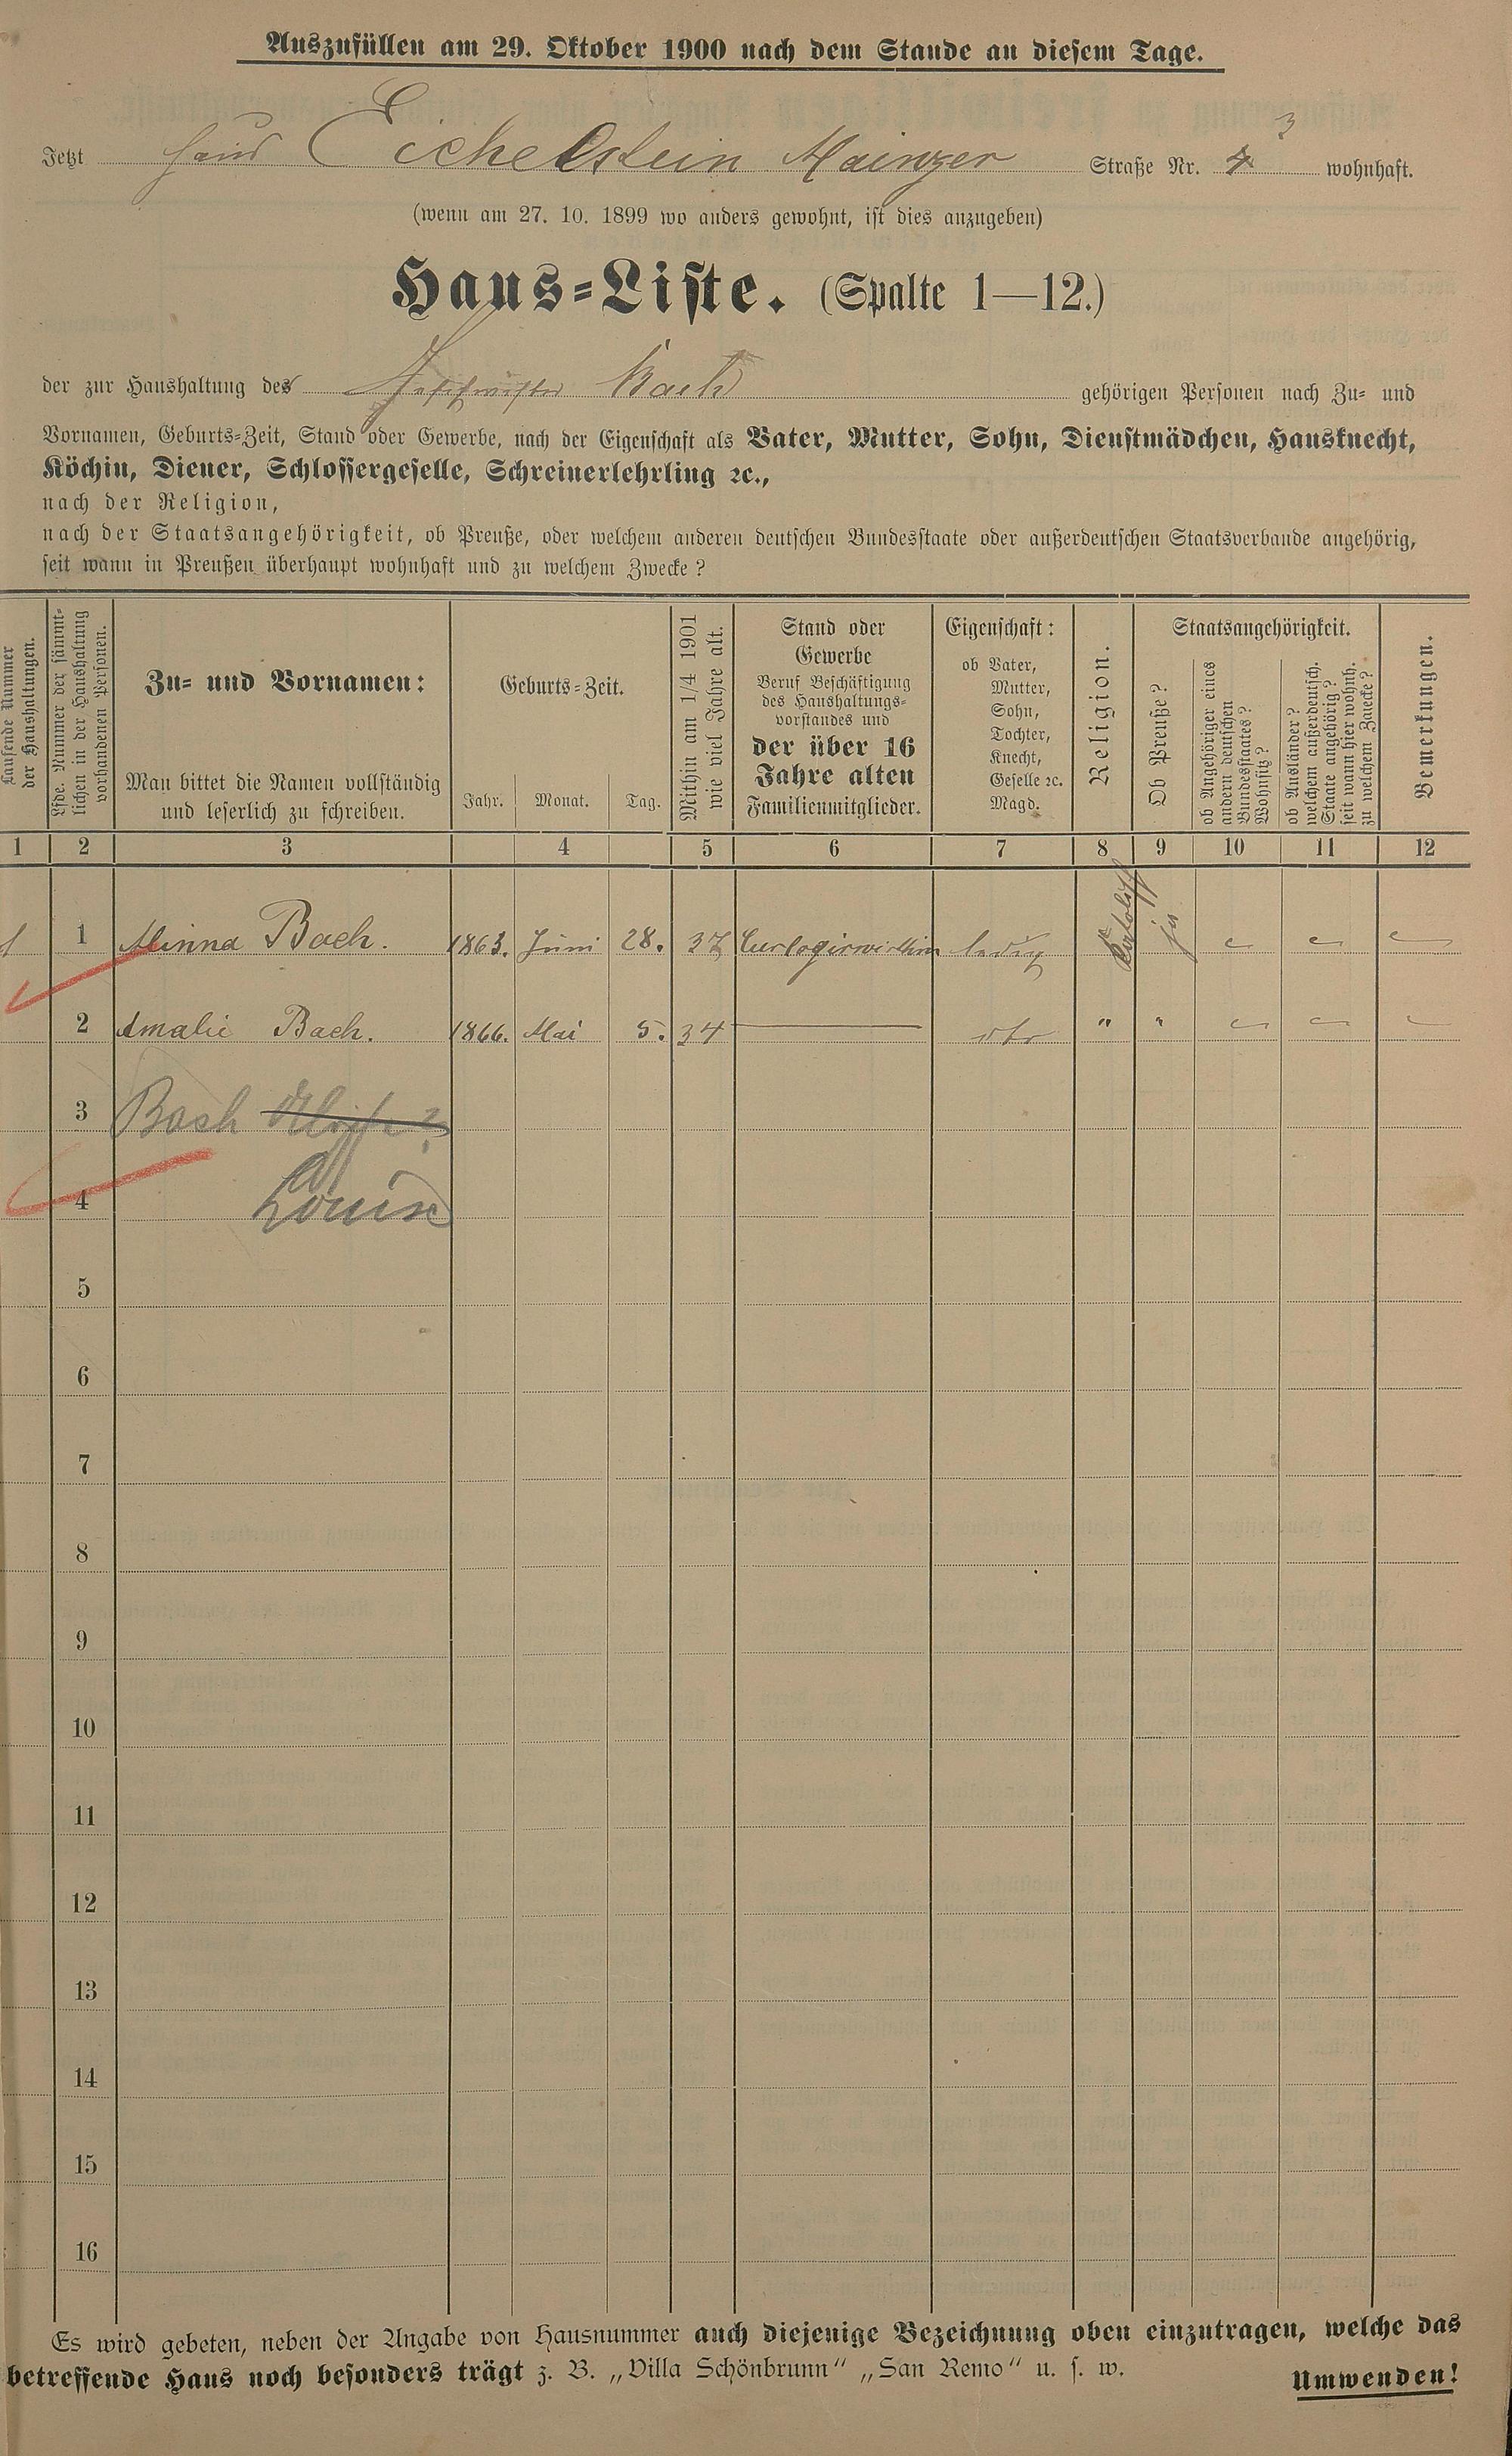 Auszufüllen am 29. Oktober 1900 nach dem Stande an diesem Tage.
Jetzt Haus Eichelstein Mainzer Straße Nr. 4 3 wohnhaft.
(wenn am 27. 10. 1899 wo anders gewohnt, ist dies anzugeben)
Haus-Liste. (Spalte 1—12.)
der zur Haushaltung des Geschwister Bach gehörigen Personen nach Zu- und
Vornamen, Geburts-Zeit, Stand oder Gewerbe, nach der Eigenschaft als Vater, Mutter, Sohn, Dienstmädchen, Hausknecht,
Köchin, Diener, Schlossergeselle, Schreinerlehrling ꝛc.,
nach der Religion,
nach der Staatsangehörigkeit, ob Preuße, oder welchem anderen deutschen Bundesstaate oder außerdeutschen Staatsverbande angehörig,
seit wann in Preußen überhaupt wohnhaft und zu welchem Zwecke?
Laufende Nummer
der Haushaltungen.
Lfde. Nummer der sämmt-
lichen in der Haushaltung
vorhandenen Personen.
Zu- und Vornamen:
Man bittet die Namen vollständig
und leserlich zu schreiben.
Geburts-Zeit.
Jahr. Monat. Tag.
Mithin am 1/4 1901
wie viel Jahre alt.
Stand oder
Gewerbe
Beruf Beschäftigung
des Haushaltungs-
vorstandes und
der über 16
Jahre alten
Familienmitglieder.
Eigenschaft:
ob Vater,
Mutter,
Sohn,
Tochter,
Knecht,
Geselle ꝛc.
Magd.
Religion.
Staatsangehörigkeit.
Ob Preuße?
ob Angehöriger eines
andern deutschen
Bundesstaates?
Wohnsitz?
ob Ausländer?
welchem außerdeutsch.
Staate angehörig?
seit wann hier wohnh.
zu welchem Zwecke?
Bemerkungen.
1 2 3 4 5 6 7 8 9 10 11 12
1 1 Minna Bach. 1863. Juni 28. 37 Curlogirwirthin ledig Katholisch ja
2 Amalie Bach. 1866. Mai 5. 34 — dto " "
3 Bach
4 Louise
5
6
7
8
9
10
11
12
13
14
15
16
Es wird gebeten, neben der Angabe von Hausnummer auch diejenige Bezeichnung oben einzutragen, welche das
betreffende Haus noch besonders trägt z. B. „Villa Schönbrunn“ „San Remo“ u. s. w.
Umwenden!